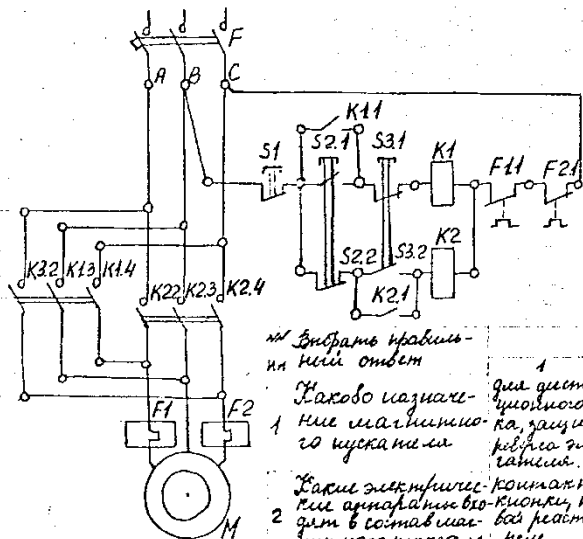 F
A B C
K1.1
S1 S2.1 S3.1 K1 F1.1 F2.1
S2.2 S3.2 K2
K2.1
K3.2 K1.3 K1.4 K2.2 K2.3 K2.4
F1 F2
M
Выбрать правиль-
ный ответ
1
1 Каково назначе-
ние магнитно-
го пускателя
для дист
ционного
ка, защи
реверса эл
гателя.
2 Какие электричес-
кие аппараты вхо-
дят в состав маг-
контакт
кнопки, т